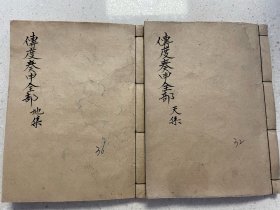 傳度奏申全部 天集
32
傳度奏申全部 地集
36